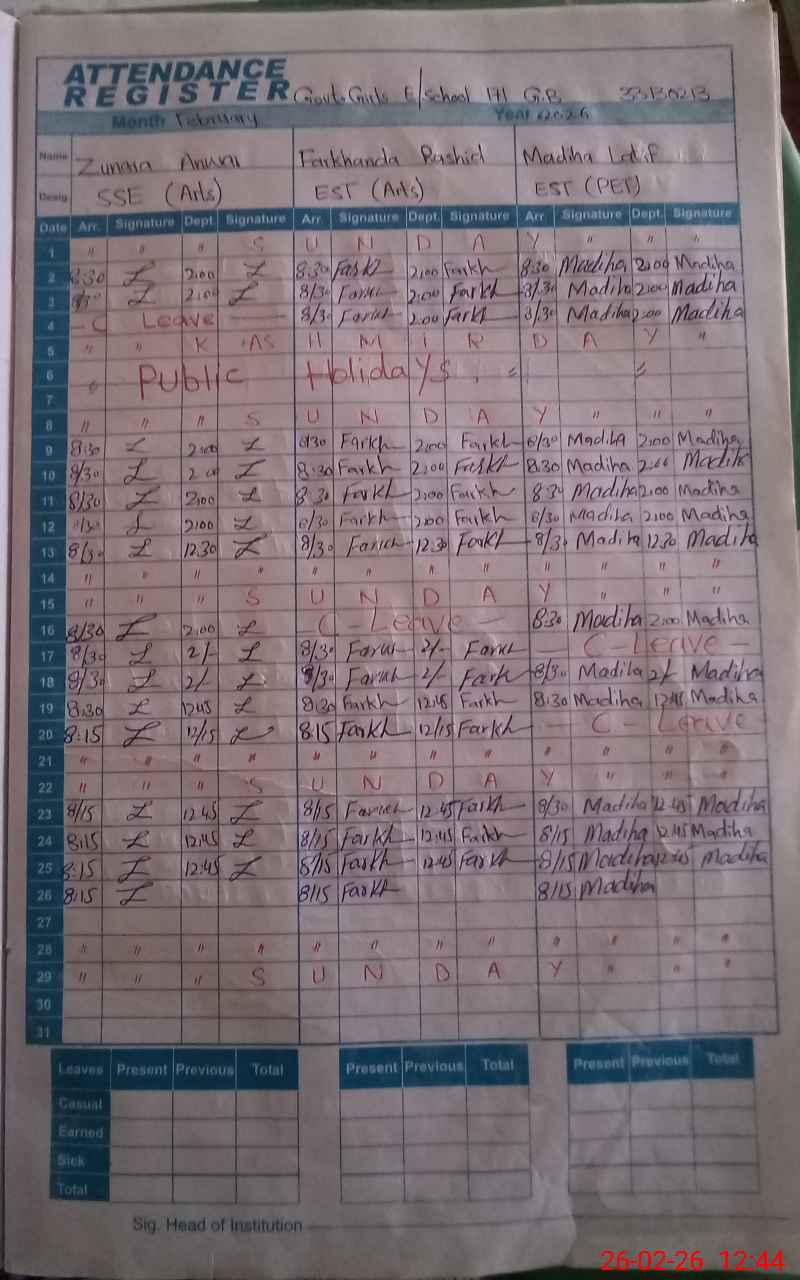 ATTENDANCE
REGISTER Govt. Girls E/School 171 G.B 33130213
Month February Year 2026
Name Zunaira Anwar Farkhanda Rashid Madiha Latif
Desig SSE (Arts) EST (Arts) EST (PET)
Date Arr. Signature Dept. Signature Arr. Signature Dept. Signature Arr Signature Dept. Signature
1 " " " S U N D A Y " " "
2 8:30 2:00 8:30 Farkh 2:00 Farkh 8:30 Madiha 2:00 Madiha
3 8/30 2:00 8/30 Farkh 2:00 Farkh 8/30 Madiha 2:00 Madiha
4 - C Leave - 8/30 Farkh 2:00 Farkh 8/30 Madiha 2:00 Madiha
5 " " K AS H M i R D A Y "
6 " Public Holidays . " "
7
8 " " " S U N D A Y " " "
9 8:30 2:00 8/30 Farkh 2:00 Farkh 8/30 Madiha 2:00 Madiha
10 8/30 2:00 8:30 Farkh 2:00 Farkh 8:30 Madiha 2:00 Madiha
11 8/30 2:00 8:30 Farkh 2:00 Farkh 8:30 Madiha 2:00 Madiha
12 8/30 2:00 8/30 Farkh 2:00 Farkh 8/30 Madiha 2:00 Madiha
13 8/30 12:30 8/30 Farkh 12:30 Farkh 8/30 Madiha 12:30 Madiha
14 " " " " " " " " " " " "
15 " " " S U N D A Y " " "
16 8/30 2:00 - C - Leave - 8:30 Madiha 2:00 Madiha
17 8/30 2/- 8/30 Farkh 2/- Farkh - C - Leave -
18 8/30 2/- 8/30 Farkh 2/- Farkh 8/30 Madiha 2/- Madiha
19 8:30 12:45 8:30 Farkh 12:45 Farkh 8:30 Madiha 12:45 Madiha
20 8:15 12/15 8:15 Farkh 12/15 Farkh - C - Leave
21 " " " " " " " " " " " "
22 " " " S U N D A Y " " "
23 8/15 12:45 8/15 Farkh 12:45 Farkh 8/30 Madiha 12:45 Madiha
24 8:15 12:45 8/15 Farkh 12:45 Farkh 8/15 Madiha 12:45 Madiha
25 8:15 12:45 8/15 Farkh 12:45 Farkh 8/15 Madiha 12:45 Madiha
26 8:15 8/15 Farkh 8/15 Madiha
27
28 " " " " " " " " " " " "
29 " " " S U N D A Y " " "
30
31
Leaves Present Previous Total Present Previous Total Present Previous Total
Casual
Earned
Sick
Total
Sig. Head of Institution
26-02-26 12:44